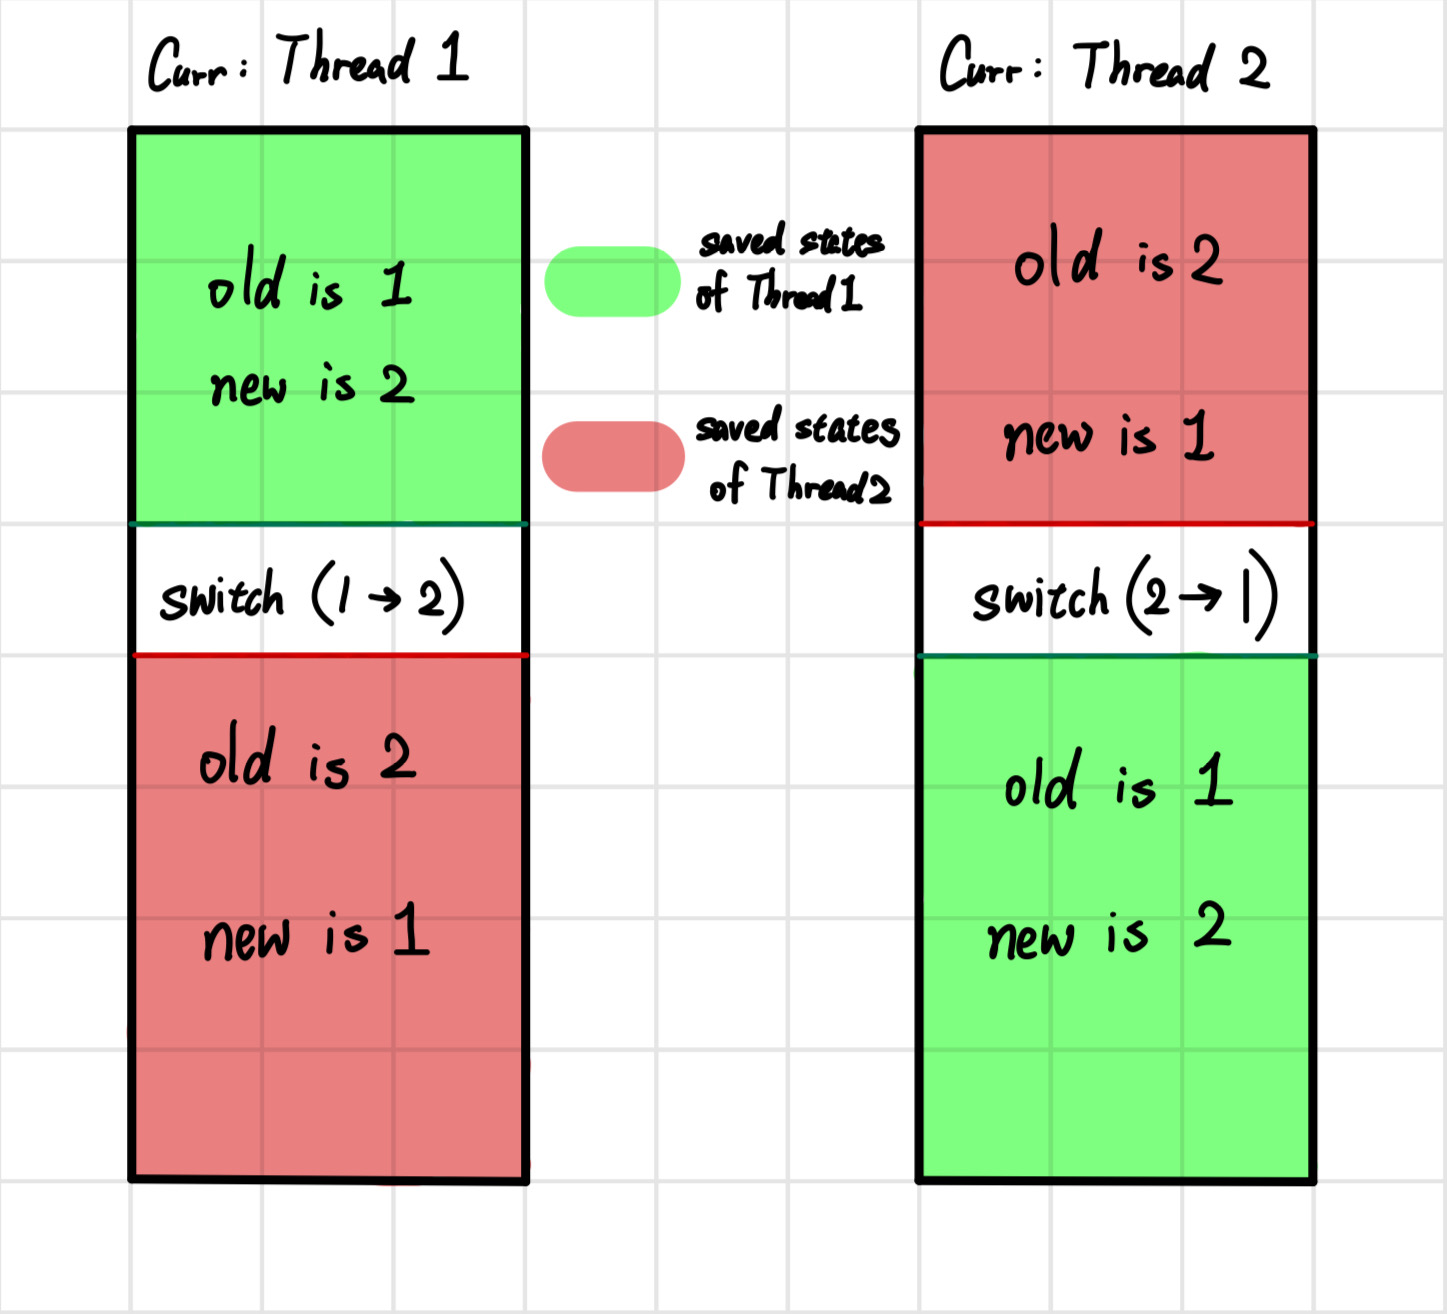 Curr: Thread 1
old is 1
new is 2
switch (1 → 2)
old is 2
new is 1
saved states
of Thread1
saved states
of Thread2
Curr: Thread 2
old is 2
new is 1
switch (2 → 1)
old is 1
new is 2